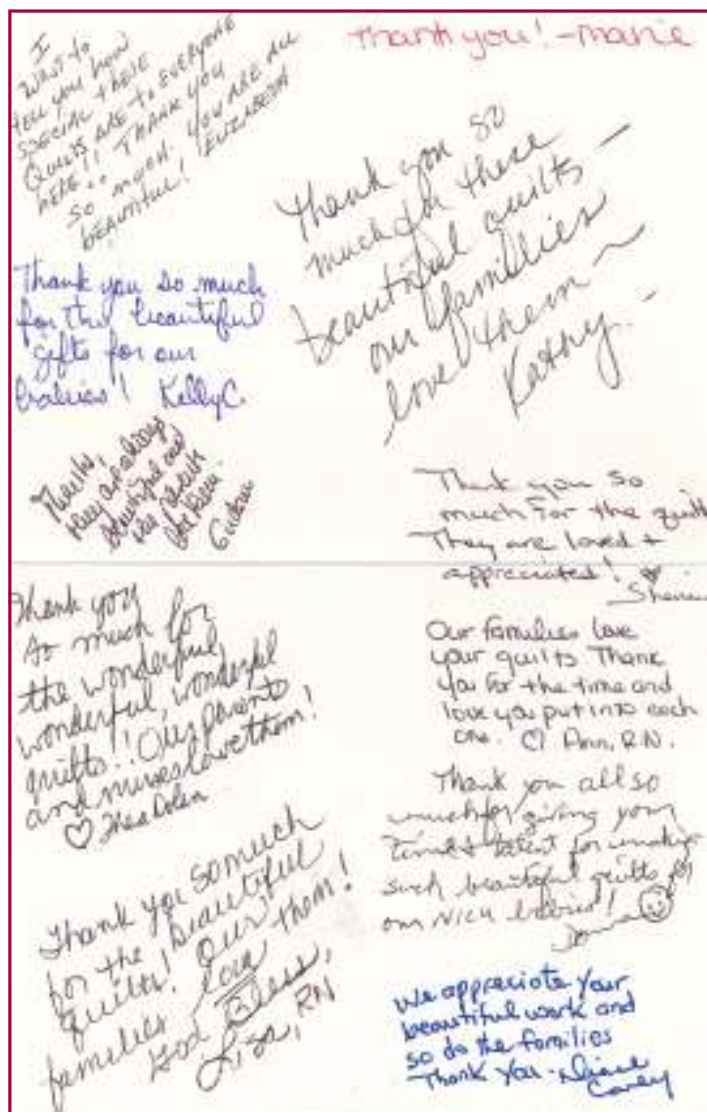 I
WANT TO
TELL YOU HOW
SPECIAL THESE
QUILTS ARE TO EVERYONE
HERE!! THANK YOU
SO MUCH. YOU ARE ALL
BEAUTIFUL! ELIZABETH
Thank you! - Marie
Thank you so
much for these
beautiful quilts -
our families
love them ~
Kathy. -
Thank you so much
for the beautiful
gifts for our
babies! Kelly C.
Thanks,
They are always
beautiful and
the parents
love them.
Thank you so
much for the quilts
They are loved +
appreciated! ♡
Thank you
so much for
the wonderful
wonderful, wonderful
quilts!! Our parents
and nurses love them!
♡
Our families love
your quilts Thank
you for the time and
love you put into each
one. ♡ Ann, RN.
Thank you all so
much for giving your
time + talent for making
such beautiful quilts for
our NICU babies!
Thank you so much
for the beautiful
quilts! Our
families love them!
God Bless,
Lisa, RN
We appreciate your
beautiful work and
so do the families
Thank you - Diane
Carey